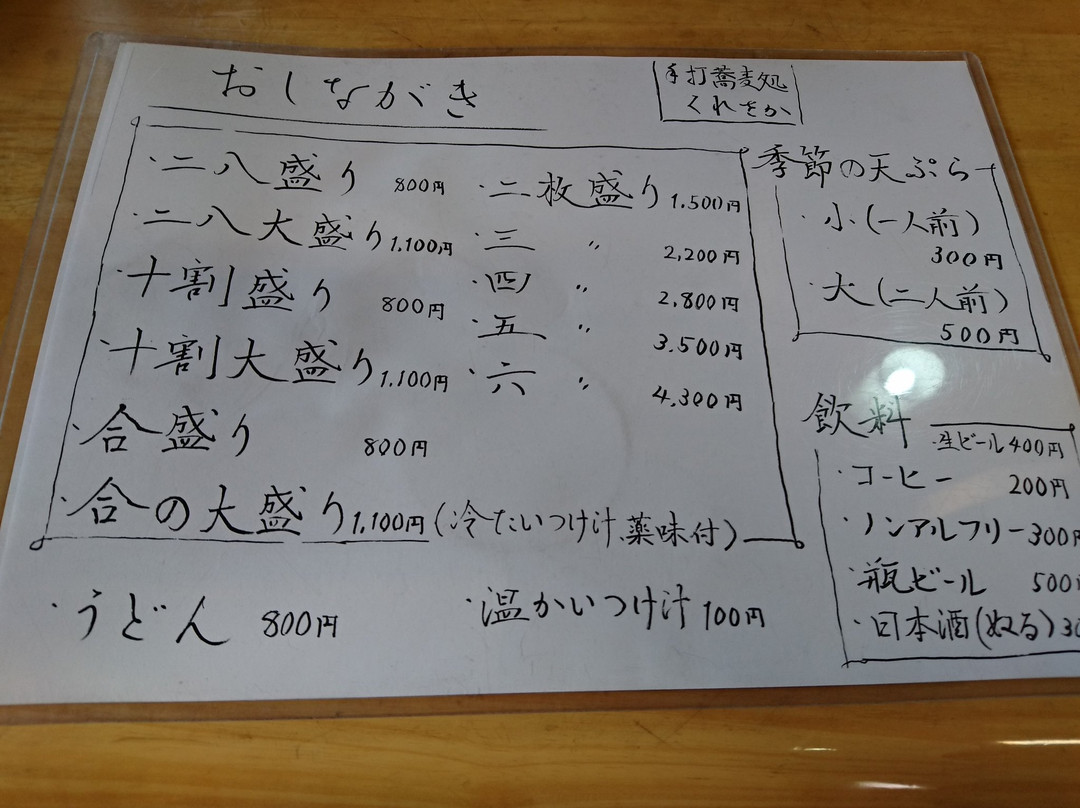 おしながき
手打蕎麦処
くれさか
・二八盛り 800円
・二八大盛り 1,100円
・十割盛り 800円
・十割大盛り 1,100円
・合盛り 800円
・合の大盛り 1,100円(冷たいつけ汁、薬味付)
・二枚盛り 1.500円
・三 〃 2,200円
・四 〃 2,800円
・五 〃 3.500円
・六 〃 4,300円
・うどん 800円
・温かいつけ汁 100円
季節の天ぷら
・小(一人前)
300円
・大(二人前)
500円
飲料
・生ビール 400円
・コーヒー 200円
・ノンアルフリー 300円
・瓶ビール 500円
・日本酒(ぬる) 30